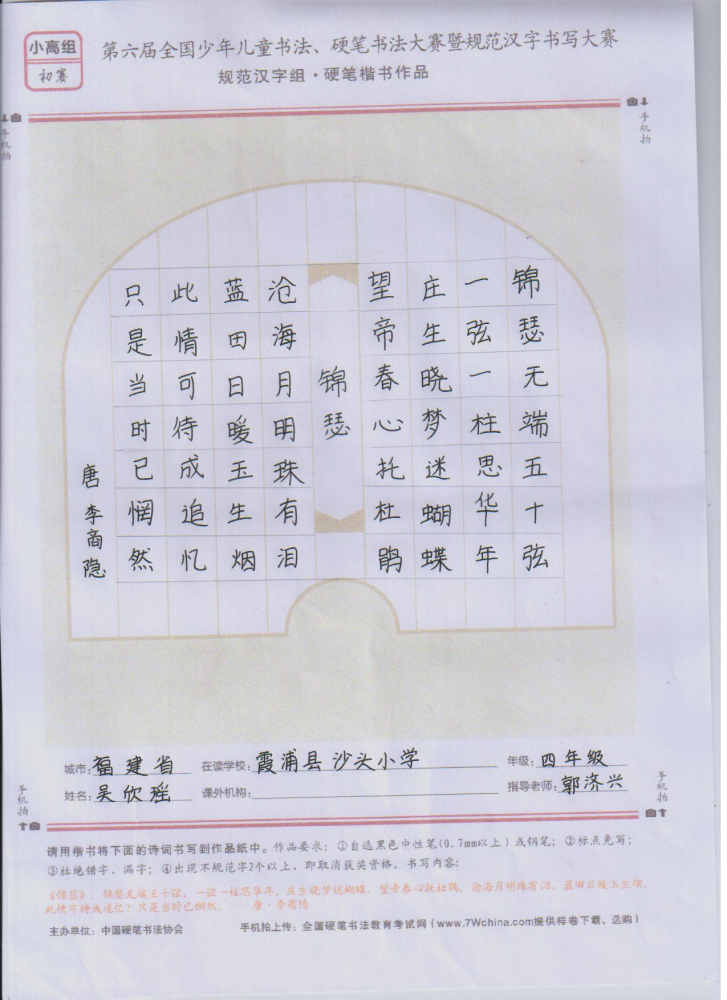 小高组
初赛
第六届全国少年儿童书法、硬笔书法大赛暨规范汉字书写大赛
规范汉字组·硬笔楷书作品
手机拍
手机拍
锦瑟无端五十弦
一弦一柱思华年
庄生晓梦迷蝴蝶
望帝春心托杜鹃
锦瑟
沧海月明珠有泪
蓝田日暖玉生烟
此情可待成追忆
只是当时已惘然
唐 李商隐
城市:福建省 在读学校:霞浦县沙头小学 年级:四年级
姓名:吴欣瑶 课外机构: 指导老师:郭济兴
手机拍
手机拍
请用楷书将下面的诗词书写到作品纸中。作品要求:①自选黑色中性笔(0.7mm以上)或钢笔;②标点免写;
③杜绝错字,漏字;④出现不规范字2个以上,即取消获奖资格,书写内容:
《锦瑟》:锦瑟无端五十弦,一弦一柱思华年。庄生晓梦迷蝴蝶,望帝春心托杜鹃。沧海月明珠有泪,蓝田日暖玉生烟。
此情可待成追忆?只是当时已惘然。——唐·李商隐
主办单位:中国硬笔书法协会 手机拍上传:全国硬笔书法教育考试网(www.7Wchina.com提供样卷下载、选购)